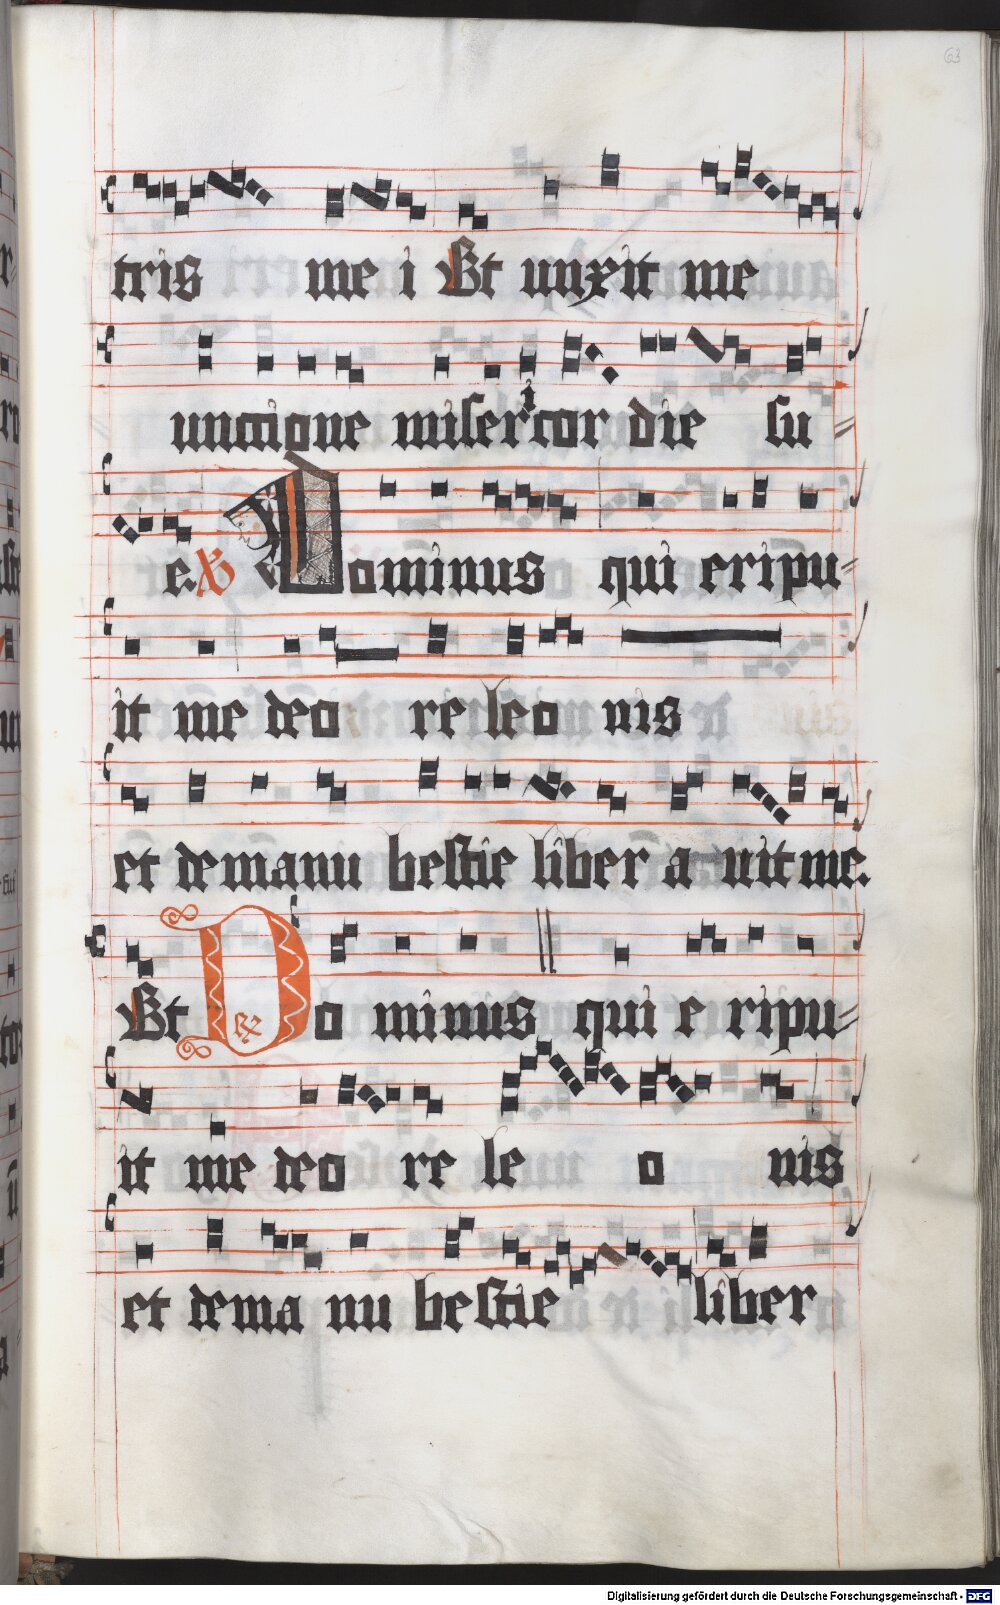 63
tris me i Et unxit me
unctione misericor die su
e. ℣ Dominus qui eripu=
it me deo re leo nis
et demanu bestie liber a uit me.
Et ℟ Do minus qui e ripu=
it me deo re le o nis
et dema nu bestie liber
Digitalisierung gefördert durch die Deutsche Forschungsgemeinschaft - DFG